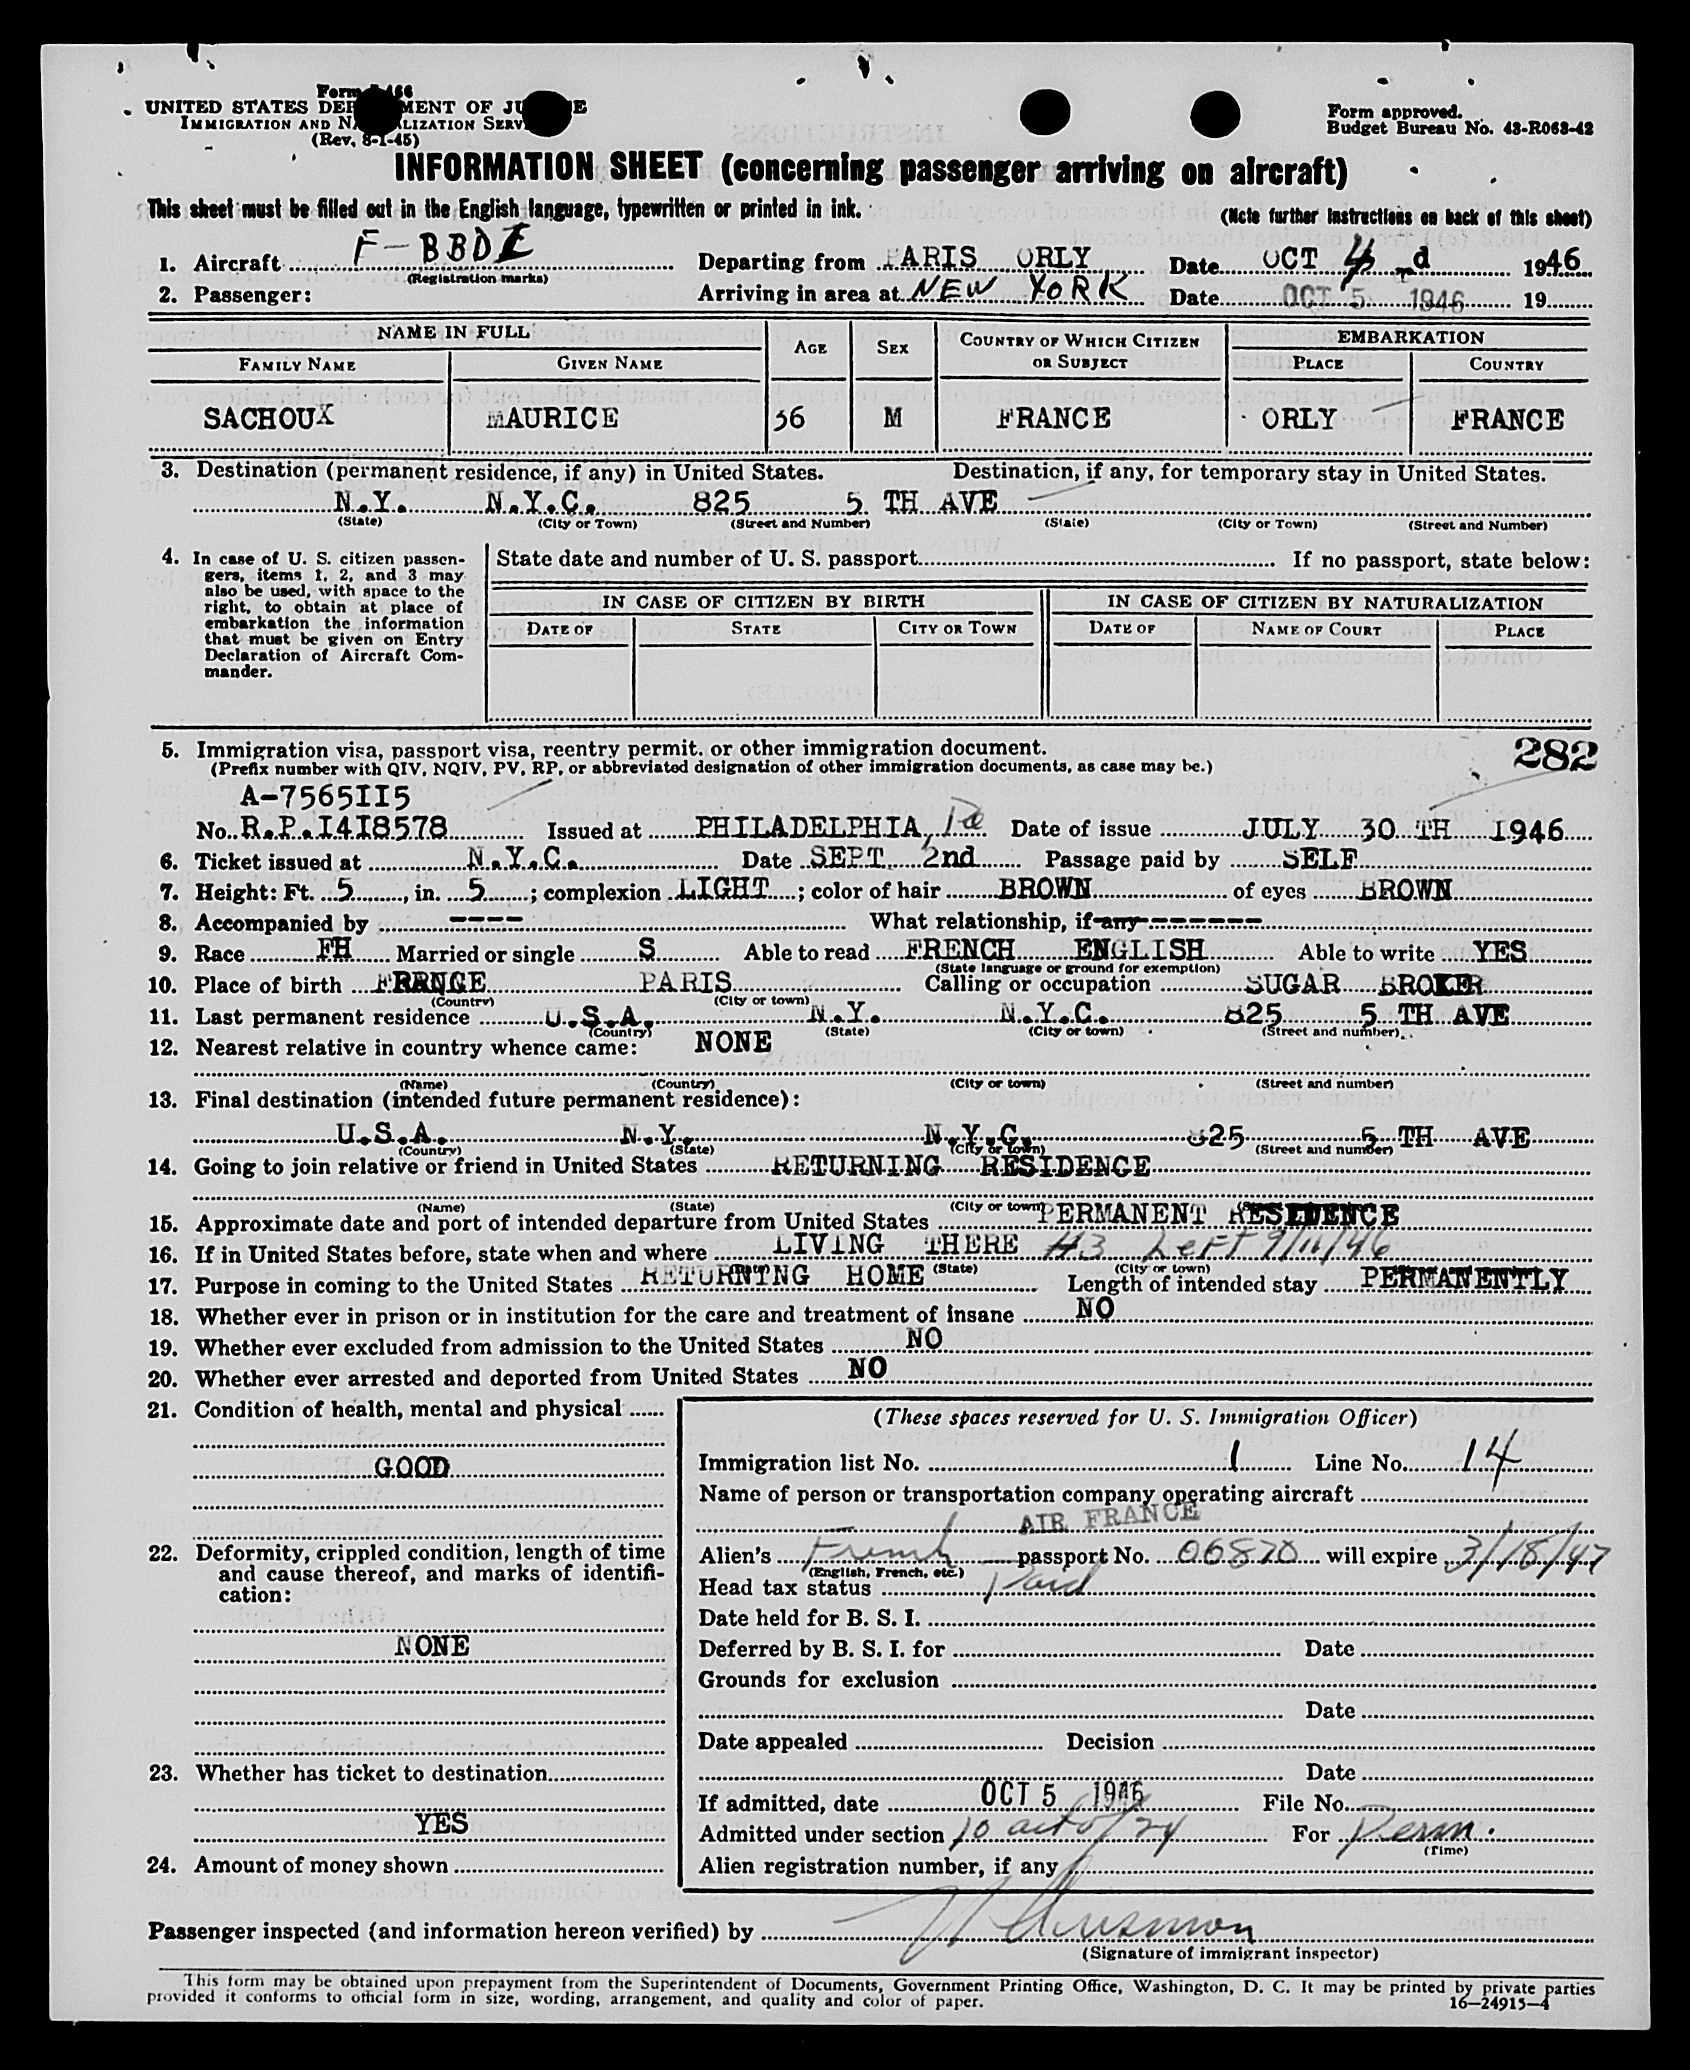 Form I-466
UNITED STATES DEPARTMENT OF JUSTICE
IMMIGRATION AND NATURALIZATION SERVICE
(Rev. 8-1-45)
Form approved.
Budget Bureau No. 43-R063-42
INFORMATION SHEET (concerning passenger arriving on aircraft)
This sheet must be filled out in the English language, typewritten or printed in ink. (Note further instructions on back of this sheet)
1. Aircraft F-BBDE Departing from PARIS ORLY Date OCT 4 d 1946
(Registration marks)
2. Passenger: Arriving in area at NEW YORK Date OCT 5 1946 19
NAME IN FULL AGE SEX COUNTRY OF WHICH CITIZEN OR SUBJECT EMBARKATION
FAMILY NAME GIVEN NAME PLACE COUNTRY
SACHOUX MAURICE 36 M FRANCE ORLY FRANCE
3. Destination (permanent residence, if any) in United States. Destination, if any, for temporary stay in United States.
N.Y. N.Y.C. 825 5 TH AVE
(State) (City or Town) (Street and Number) (State) (City or Town) (Street and Number)
4. In case of U. S. citizen passengers, items 1, 2, and 3 may also be used, with space to the right, to obtain at place of embarkation the information that must be given on Entry Declaration of Aircraft Commander.
State date and number of U. S. passport If no passport, state below:
IN CASE OF CITIZEN BY BIRTH IN CASE OF CITIZEN BY NATURALIZATION
DATE OF STATE CITY OR TOWN DATE OF NAME OF COURT PLACE
5. Immigration visa, passport visa, reentry permit, or other immigration document. 282
(Prefix number with QIV, NQIV, PV, RP, or abbreviated designation of other immigration documents, as case may be.)
A-7565II5
No. R.P.I4I8578 Issued at PHILADELPHIA, Pa Date of issue JULY 30 TH 1946
6. Ticket issued at N.Y.C. Date SEPT 2nd Passage paid by SELF
7. Height: Ft. 5, in. 5; complexion LIGHT; color of hair BROWN of eyes BROWN
8. Accompanied by ---- What relationship, if any -------
9. Race FH Married or single S Able to read FRENCH ENGLISH Able to write YES
(State language or ground for exemption)
10. Place of birth FRANCE PARIS Calling or occupation SUGAR BROKER
(Country) (City or town)
11. Last permanent residence U.S.A. N.Y. N.Y.C. 825 5 TH AVE
(Country) (State) (City or town) (Street and number)
12. Nearest relative in country whence came: NONE
(Name) (Country) (City or town) (Street and number)
13. Final destination (intended future permanent residence):
U.S.A. N.Y. N.Y.C. 825 5 TH AVE
(Country) (State) (City or town) (Street and number)
14. Going to join relative or friend in United States RETURNING RESIDENCE
(Name) (State) (City or town)
15. Approximate date and port of intended departure from United States PERMANENT RESIDENCE
16. If in United States before, state when and where LIVING THERE 43 Left 9/11/46
(State) (City or town)
17. Purpose in coming to the United States RETURNING HOME Length of intended stay PERMANENTLY
18. Whether ever in prison or in institution for the care and treatment of insane NO
19. Whether ever excluded from admission to the United States NO
20. Whether ever arrested and deported from United States NO
21. Condition of health, mental and physical
GOOD
22. Deformity, crippled condition, length of time and cause thereof, and marks of identification:
NONE
23. Whether has ticket to destination
YES
24. Amount of money shown
(These spaces reserved for U. S. Immigration Officer)
Immigration list No. 1 Line No. 14
Name of person or transportation company operating aircraft
AIR FRANCE
Alien's French passport No. 06870 will expire 3/18/47
(English, French, etc.)
Head tax status Paid
Date held for B. S. I.
Deferred by B. S. I. for Date
Grounds for exclusion
Date
Date appealed Decision
Date
If admitted, date OCT 5 1946 File No.
Admitted under section 10 act of 24 For Perm.
(Time)
Alien registration number, if any
Passenger inspected (and information hereon verified) by
(Signature of immigrant inspector)
This form may be obtained upon prepayment from the Superintendent of Documents, Government Printing Office, Washington, D. C. It may be printed by private parties
provided it conforms to official form in size, wording, arrangement, and quality and color of paper. 16—24915-4